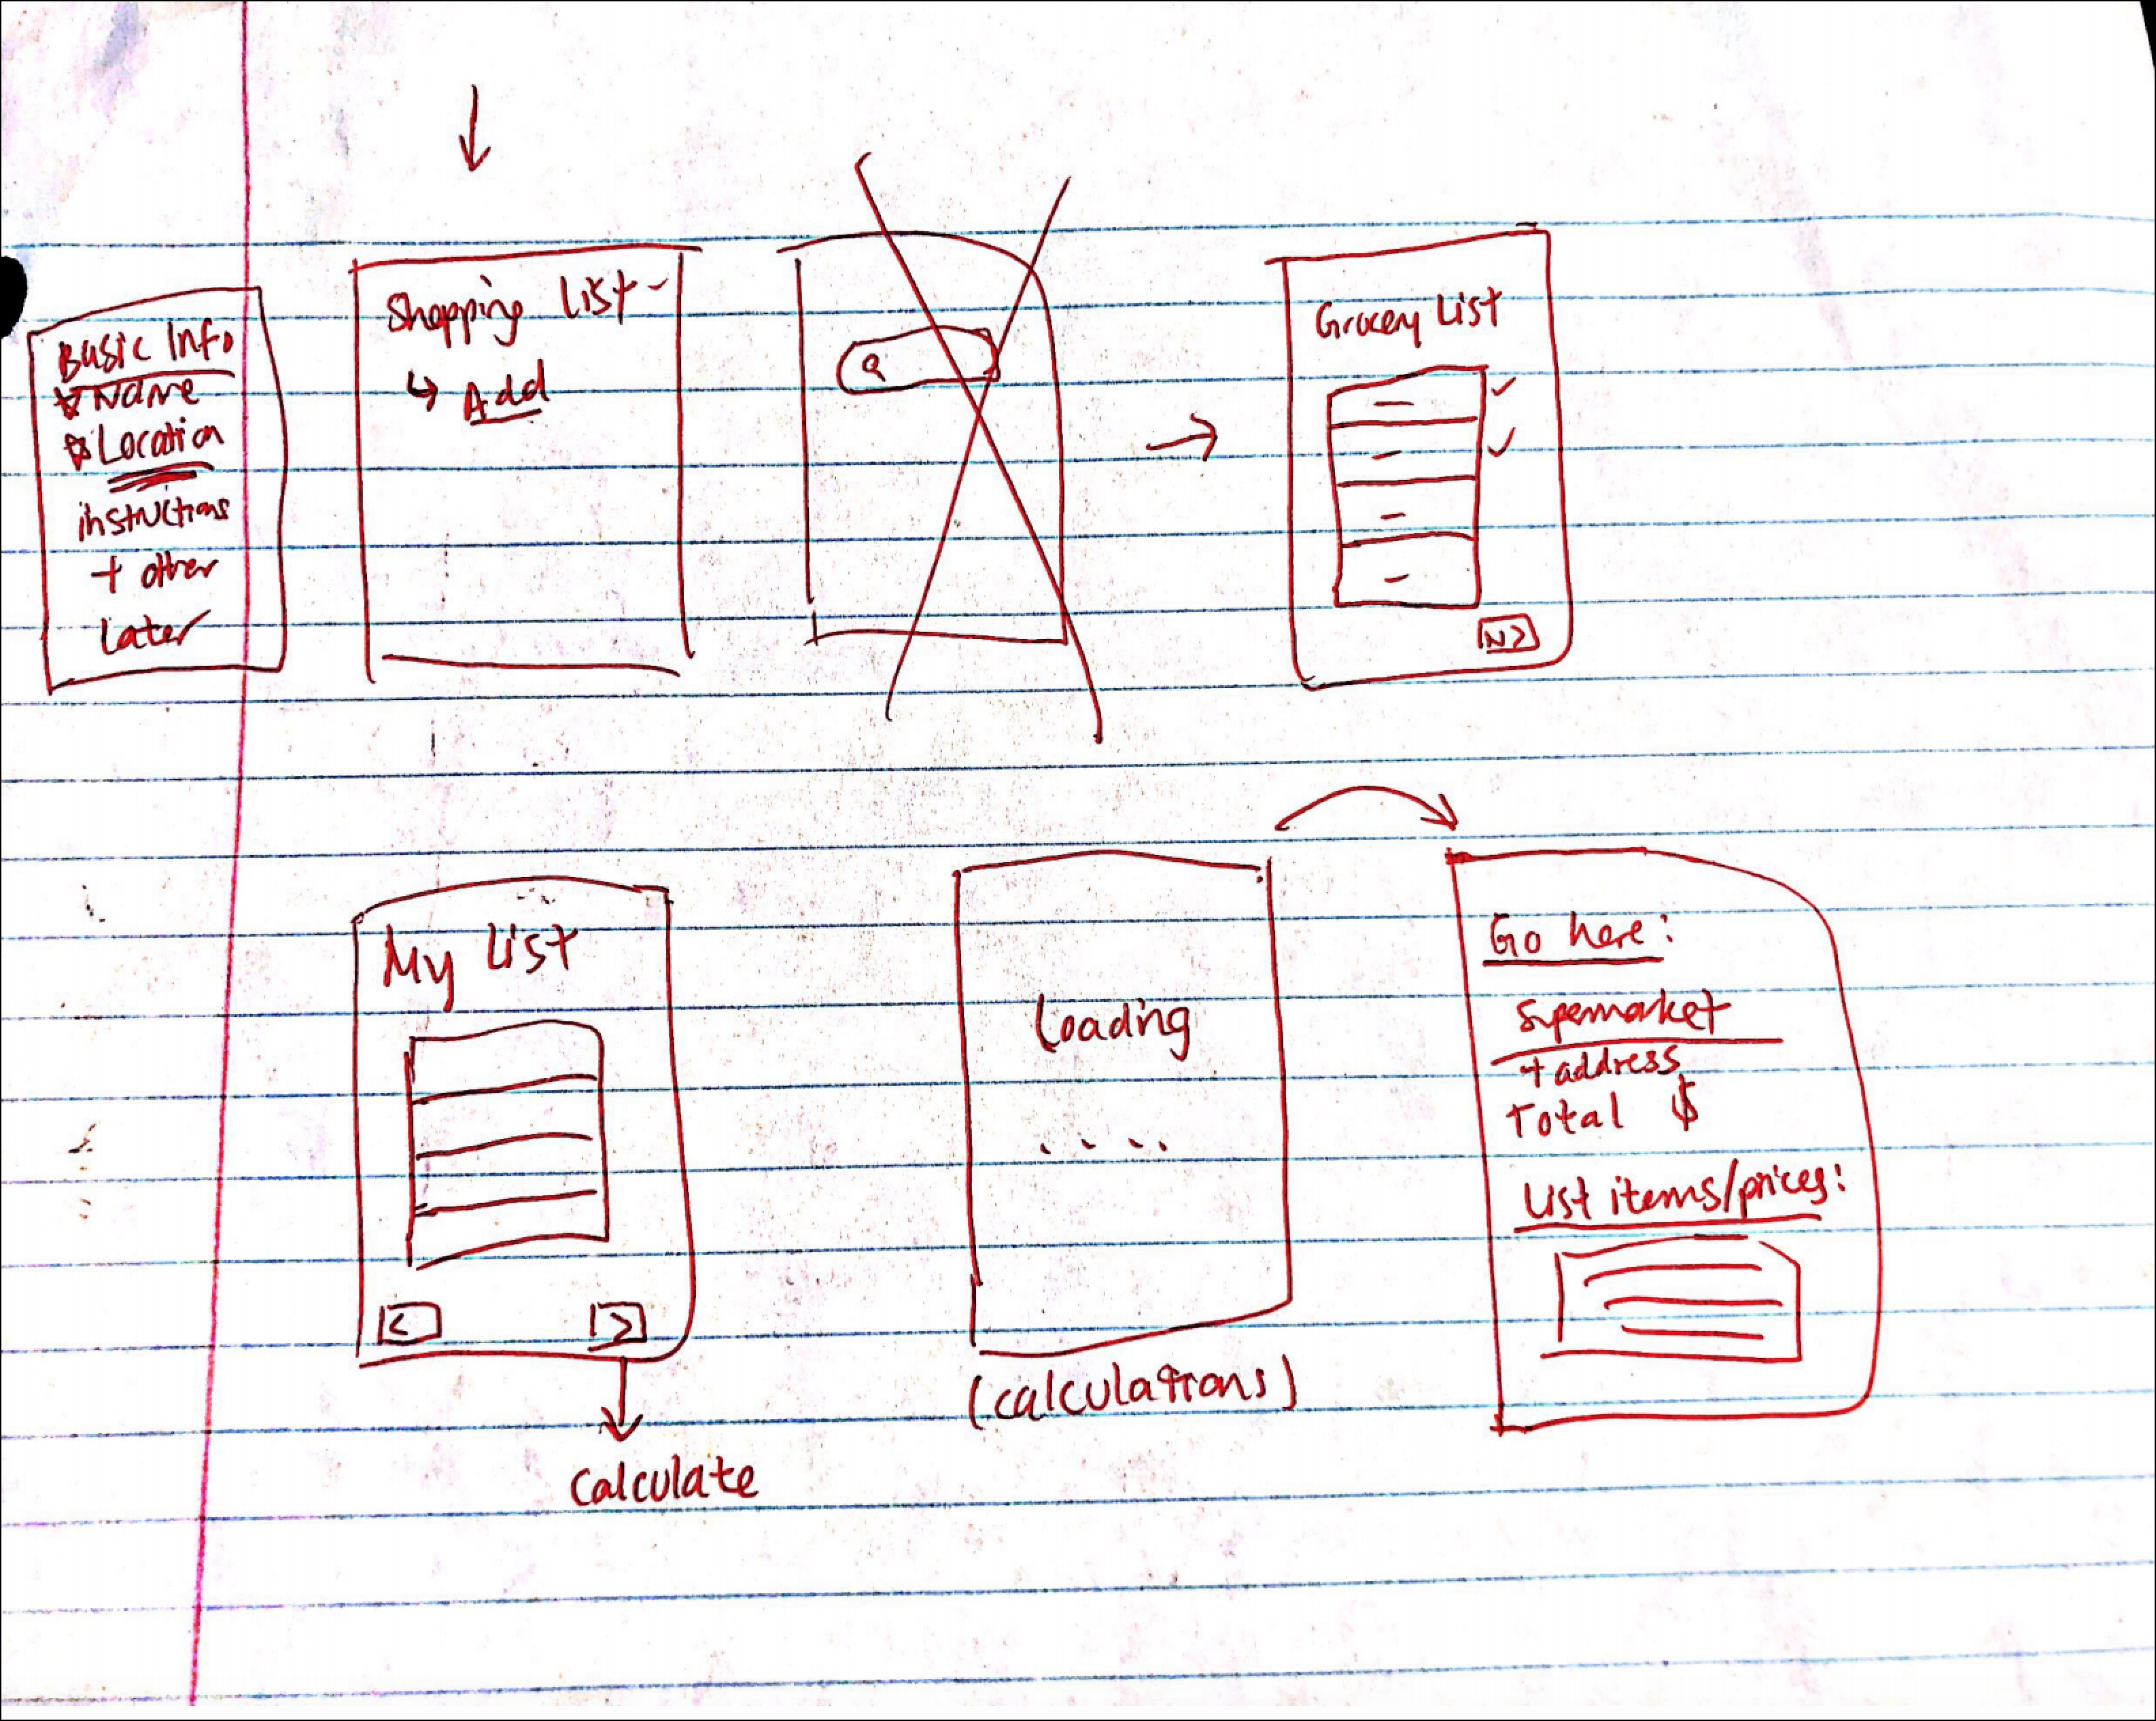 Basic Info
Name
Location
instructions
+ other
Later
Shopping List
↳ Add
Grocery List
✓
✓
N>
My List
<
>
Calculate
Loading
....
(calculations)
Go here:
Supermarket
+ address
Total $
List items/prices: